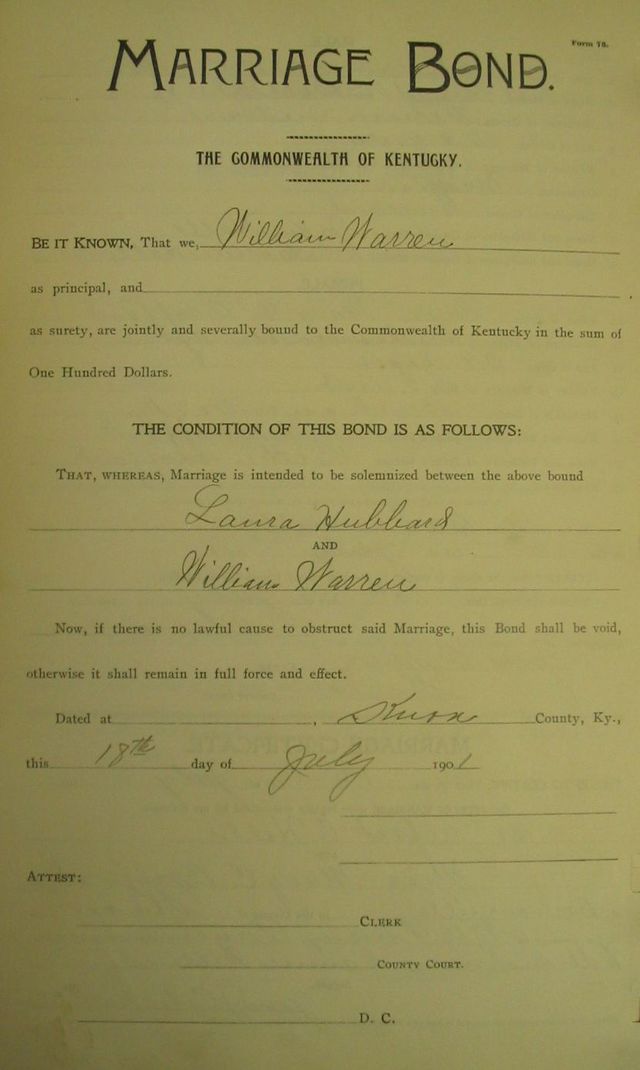 Form 78.
MARRIAGE BOND.
THE COMMONWEALTH OF KENTUCKY.
BE IT KNOWN, That we, William Warren
as principal, and
as surety, are jointly and severally bound to the Commonwealth of Kentucky in the sum of
One Hundred Dollars.
THE CONDITION OF THIS BOND IS AS FOLLOWS:
THAT, WHEREAS, Marriage is intended to be solemnized between the above bound
Laura Hubbard
AND
William Warren
Now, if there is no lawful cause to obstruct said Marriage, this Bond shall be void,
otherwise it shall remain in full force and effect.
Dated at , Knox County, Ky.,
this 18th day of July 1901
ATTEST:
CLERK
COUNTY COURT.
D. C.